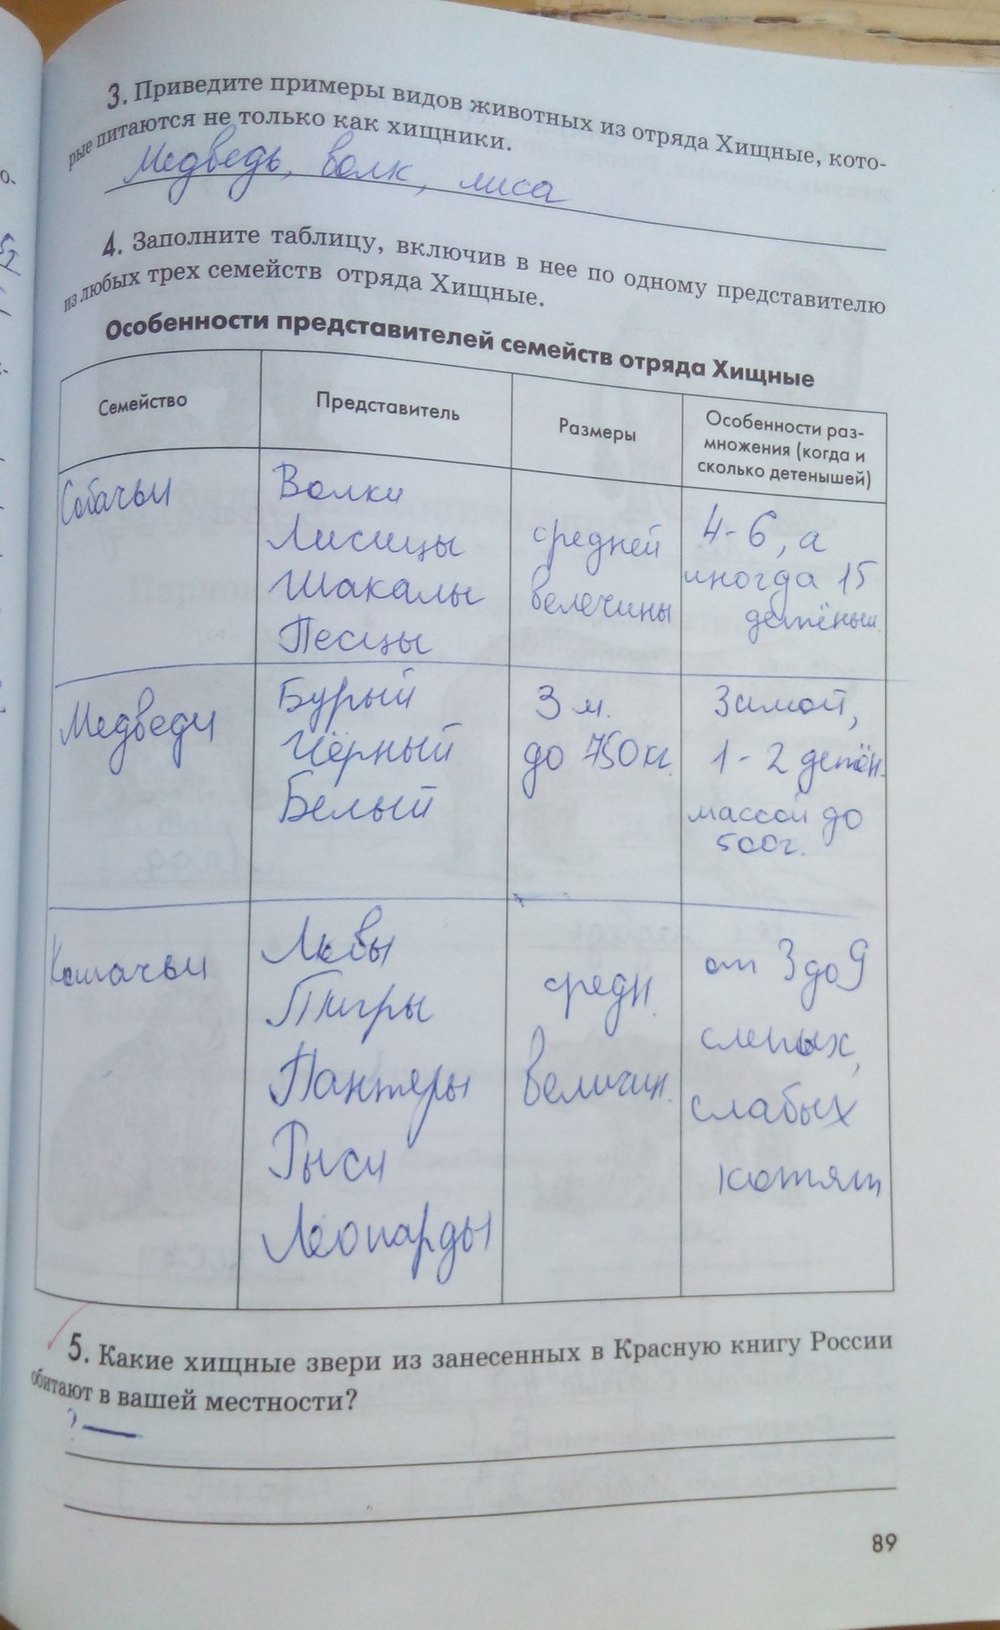 3. Приведите примеры видов животных из отряда Хищные, кото-
рые питаются не только как хищники.
Медведь, волк, лиса
4. Заполните таблицу, включив в нее по одному представителю
из любых трех семейств отряда Хищные.
Особенности представителей семейств отряда Хищные
Семейство
Представитель
Размеры
Особенности раз-
множения (когда и
сколько детенышей)
Собачьи
Волки
Лисицы
Шакалы
Песцы
средней
велечины
4-6, а
иногда 15
детёныш.
Медведи
Бурый
Чёрный
Белый
3 м.
до 750кг.
Зимой,
1-2 детён.
массой до
500г.
Кошачьи
Львы
Тигры
Пантеры
Рыси
Леопарды
средн.
величин.
от 3 до 9
слепых,
слабых
котят
5. Какие хищные звери из занесенных в Красную книгу России
обитают в вашей местности?
? —
89